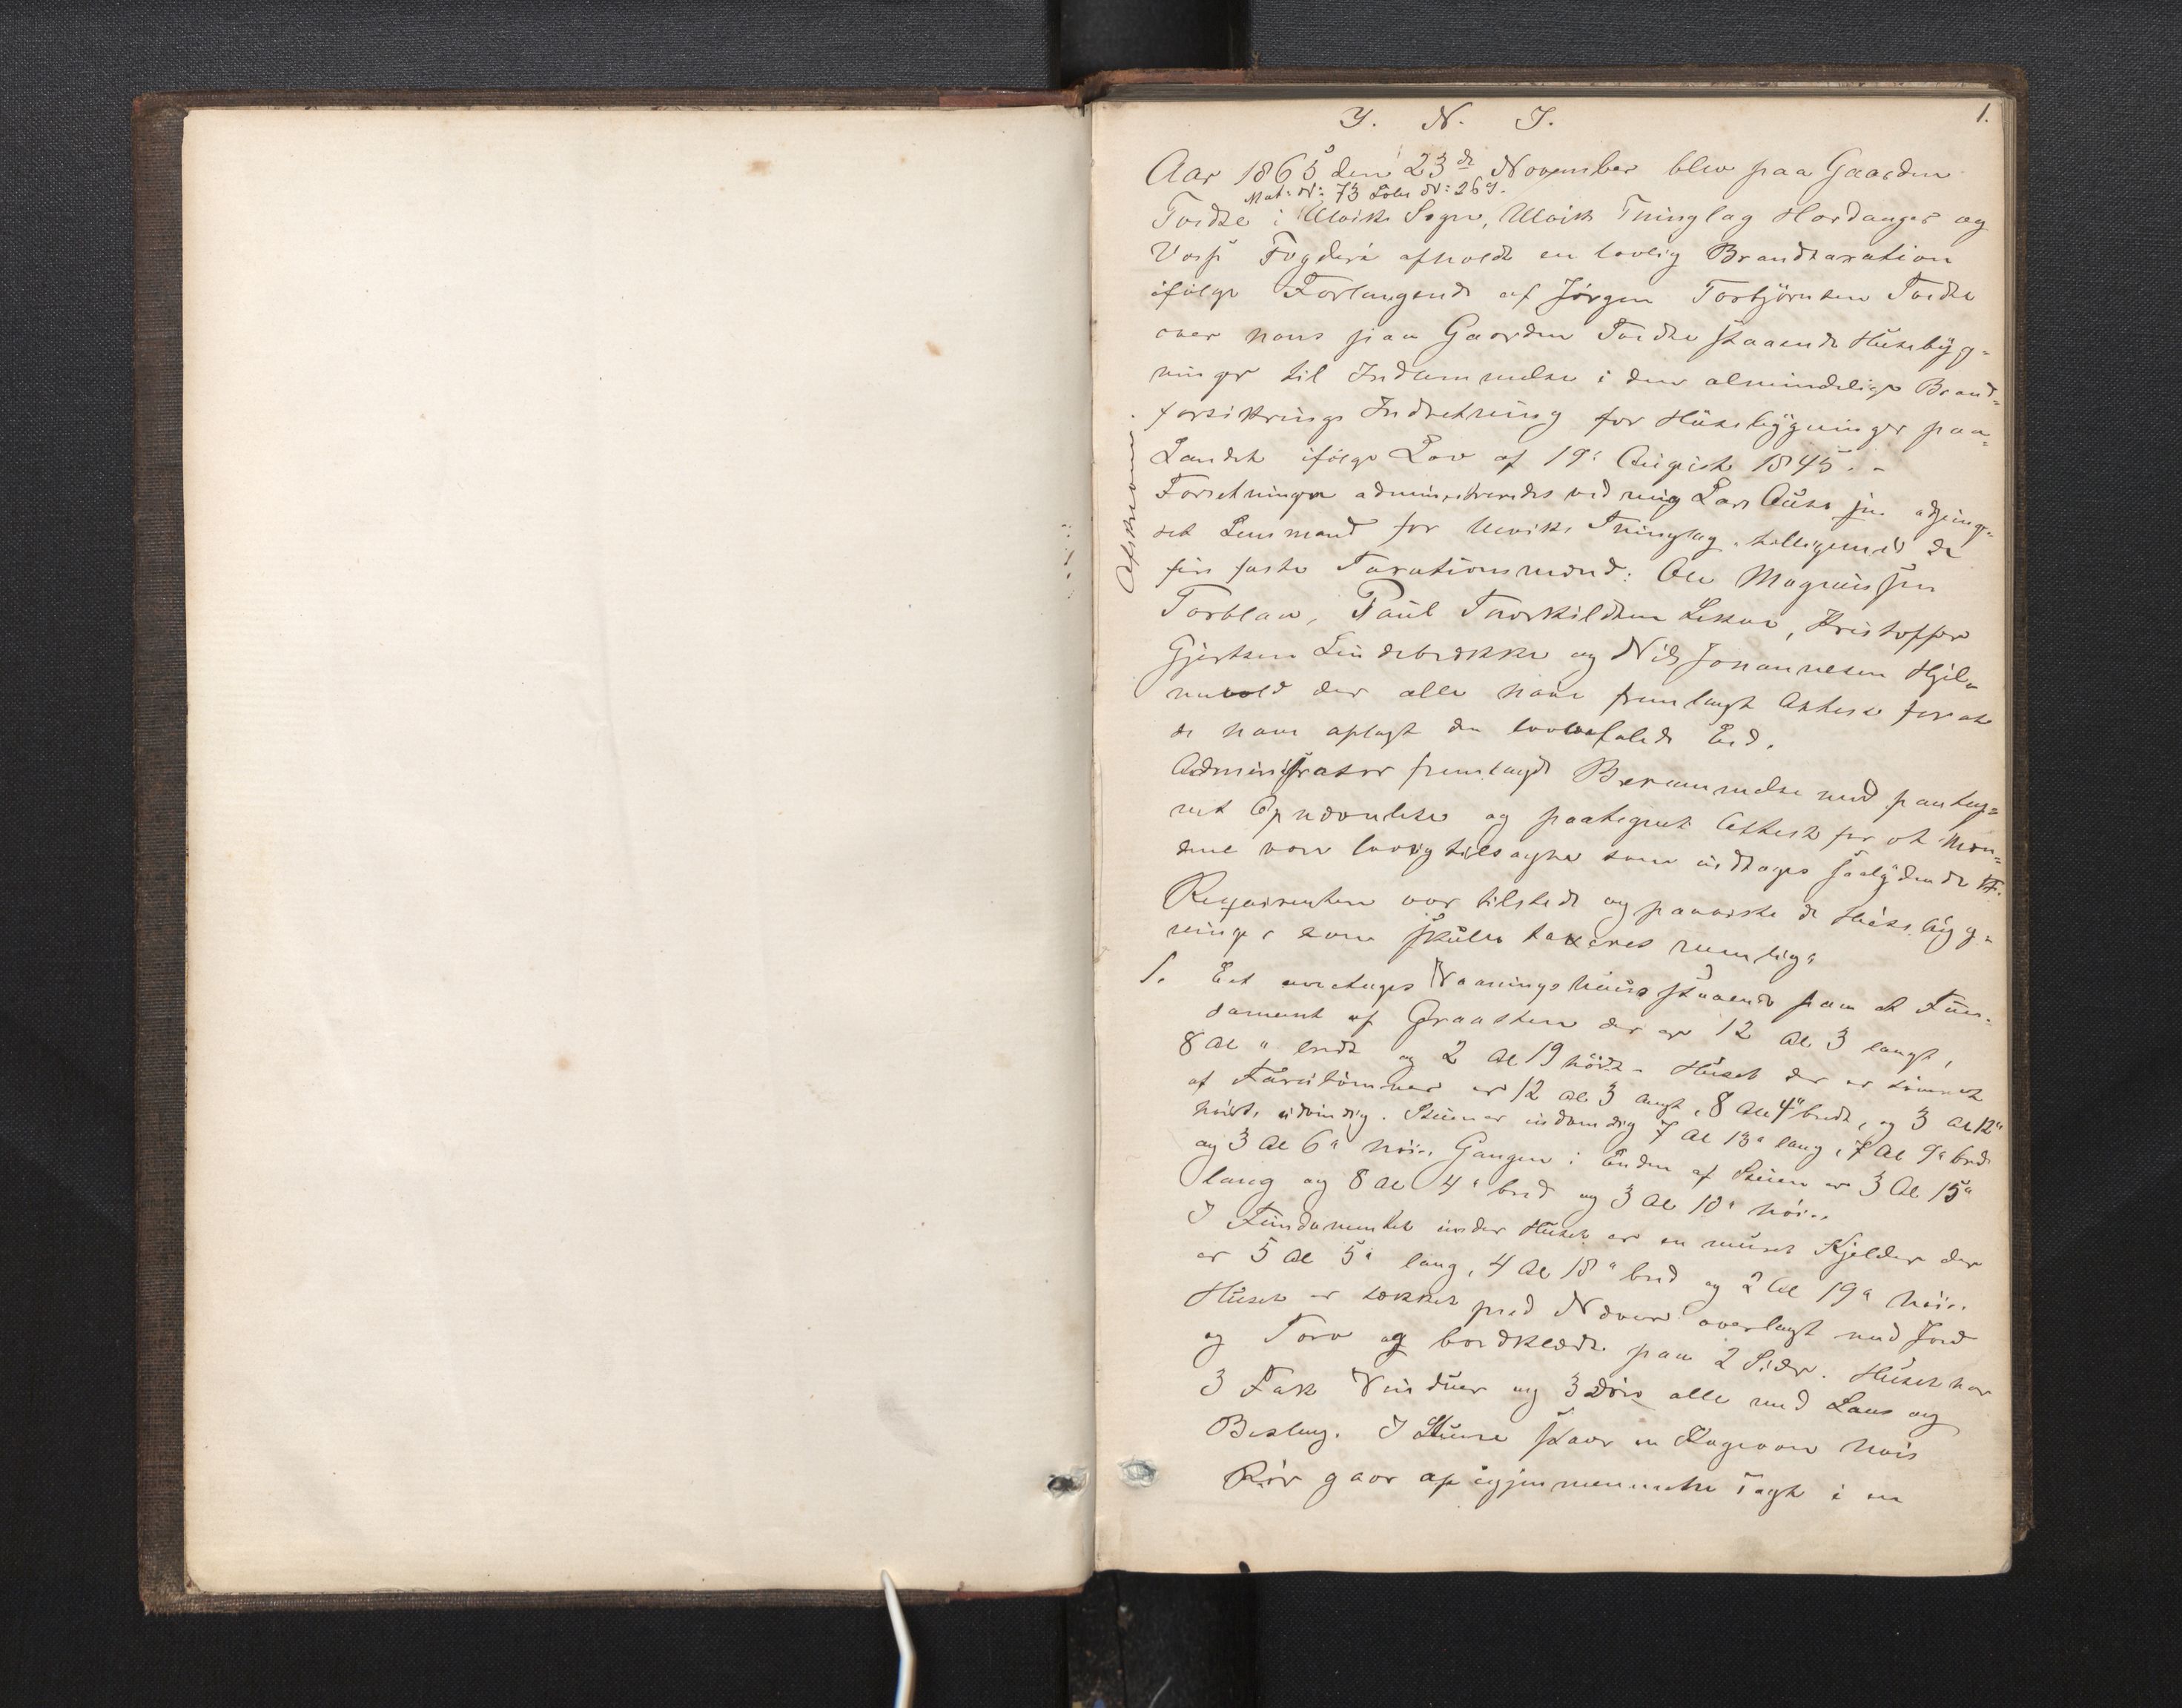 Y. N. J.
1.
Aar 1865 den 23de November blev paa Gaarden
Mat: N: 73 Løbe N: 269.
Tvedte i Ulviks Sogn, Ulvik Thinglag Hardanger og
Voss Fogderi afholdt en lovlig Brandtaxation
ifølge Forlangende af Jörgen Torbjörnsen Tvedte
over hans paa Gaarden Tvedte staaende Husebyg-
ninger til Indlemmelse i den almindelige Brand-
forsikrings Indretning for Husebygninger paa
Landet ifølge Lov af 19' August 1845. -
Forretningen administreredes ved mig Lars jun adjung-
eret Lensmand for Ulviks Thinglag tilligemed de
fire faste Taxationsmænd: Ole Magnussen
Torblaa, Paul Thorkildsen Lekve, Kristoffer
Gjertsen Lindebrække og Nils Johannesen Hjel-
mevold der alle have fremlagt Attest for at
de have aflagt den lovbefalede Eed.
Administrator fremlagde Berammelse med paateg-
net Opnævnelse og paategnet Attest for at Mæn-
dene vare lovlig tilsagte som indtages saalydende
Reqvirenten var tilstede og paaviste de Husebyg-
ninger som skulle taxeres nemlig:
1. Et Vaaningshuus staaende paa et Fun-
dament af Graasten der er 12 Al 3 langt,
8 Al " bredt og 2 Al 19 höit - Huset der er tømret
af Furutömmer er 12 Al 3 langt, 8 Al 4" bredt, og 3 Al 12"
höit, udvendig. Stuen er indvendig 7 Al 13" lang, 7 Al 9" bred
og 3 Al 6" höi. Gangen i Enden af Stuen er 3 Al 15"
lang og 8 Al 4" bred og 3 Al 10" höi.
I Fundamentet under Huset er en muret Kjelder der
er 5 Al 5" lang, 4 Al 18" bred og 2 Al 19" höi.
Huset er tækket med Næver overlagt med Jord
og Torv og bordklædt paa 2 Sider. Huset har
3 Fak Vinduer og 3 Döre alle med Laas og
Beslag. I Stuen staar en Kogeovn hvis
Rör gaar op igjennem